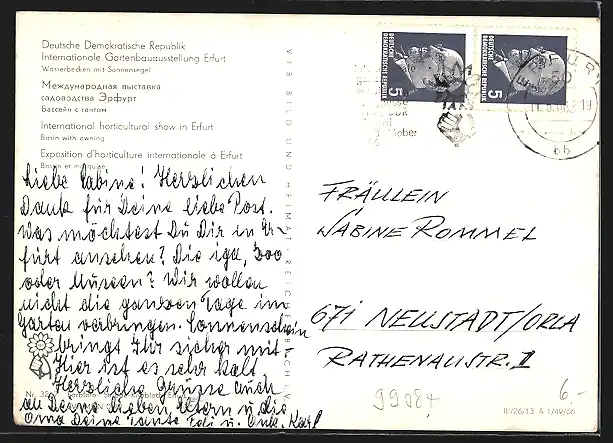 Deutsche Demokratische Republik
Internationale Gartenbauausstellung Erfurt
Wasserbecken mit Sonnensegel
Международная выставка
садоводства Эрфурт
бассейн с тентом
International horticultural show in Erfurt
Basin with awning
Exposition d'horticulture internationale à Erfurt
Bassin et marquise
Liebe Sabine! Herzlichen
Dank für Deine liebe Post.
Was möchtest Du Dir in Er-
furt ansehen? Die iga, Zoo
oder Museen? Wir wollen
nicht die ganzen Tage im
Garten verbringen. Sonnenschein
bringt Ihr sicher mit.
Hier ist es sehr kalt.
Herzliche Grüsse auch
an Deine lieben Eltern u. die
Oma Deine Tante u. Onk. Karl
VEB BILD UND HEIMAT REICHENBACH I. V.
DEUTSCHE DEMOKRATISCHE REPUBLIK
5
DEUTSCHE DEMOKRATISCHE REPUBLIK
5
ERFURT
50
19
bb
FRÄULEIN
SABINE ROMMEL
671 NEUSTADT/ORLA
RATHENAUSTR. 1
99084
6,-
III/26/13 A 1/49/66